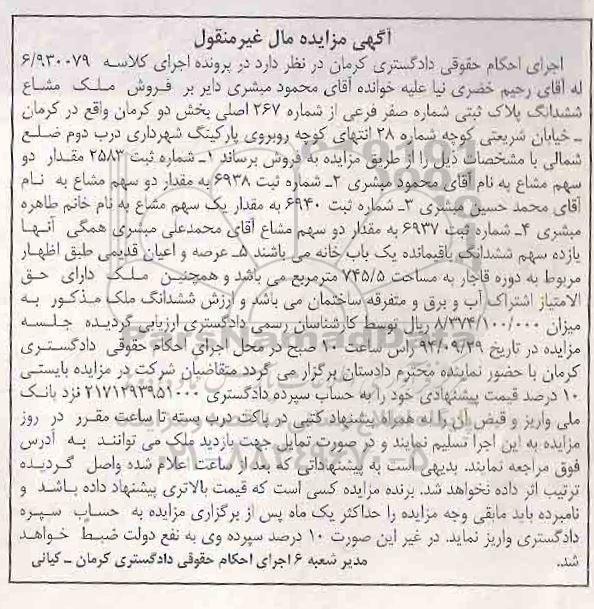 آگهی مزایده مال غیرمنقول
اجرای احکام حقوقی دادگستری کرمان در نظر دارد در پرونده اجرای کلاسه ۶/۹۳۰۰۷۹
له آقای رحیم خضری نیا علیه خوانده آقای محمود مبشری دایر بر فروش ملک مشاع
ششدانگ پلاک ثبتی شماره صفر فرعی از شماره ۲۶۷ اصلی بخش دو کرمان واقع در کرمان
ـ خیابان شریعتی کوچه شماره ۲۸ انتهای کوچه روبروی پارکینگ شهرداری درب دوم ضلع
شمالی با مشخصات ذیل را از طریق مزایده به فروش برساند ۱ـ شماره ثبت ۲۵۸۳ مقدار دو
سهم مشاع به نام آقای محمود مبشری ۲ـ شماره ثبت ۶۹۳۸ به مقدار دو سهم مشاع به نام
آقای محمد حسین مبشری ۳ـ شماره ثبت ۶۹۴۰ به مقدار یک سهم مشاع به نام خانم طاهره
مبشری ۴ـ شماره ثبت ۶۹۳۷ به مقدار دو سهم مشاع آقای محمدعلی مبشری همگی آنها
یازده سهم ششدانگ باقیمانده یک باب خانه می باشند ۵ـ عرصه و اعیان قدیمی طبق اظهار
مربوط به دوره قاجار به مساحت ۷۴۵/۵ مترمربع می باشد و همچنین ملک دارای حق
الامتیاز اشتراک آب و برق و متفرقه ساختمان می باشد و ارزش ششدانگ ملک مذکور به
میزان ۸/۳۷۴/۱۰۰/۰۰۰ ریال توسط کارشناسان رسمی دادگستری ارزیابی گردیده جلسه
مزایده در تاریخ ۹۴/۰۹/۲۹ راس ساعت ۱۰ صبح در محل اجرای احکام حقوقی دادگستری
کرمان با حضور نماینده محترم دادستان برگزار می گردد متقاضیان شرکت در مزایده بایستی
۱۰ درصد قیمت پیشنهادی خود را به حساب سپرده دادگستری ۲۱۷۱۲۹۳۹۵۱۰۰۰ نزد بانک
ملی واریز و قبض آن را به همراه پیشنهاد کتبی در پاکت درب بسته تا ساعت مقرر در روز
مزایده به این اجرا تسلیم نمایند و در صورت تمایل جهت بازدید ملک می توانند به آدرس
فوق مراجعه نمایند. بدیهی است به پیشنهاداتی که بعد از ساعت اعلام شده واصل گردیده
ترتیب اثر داده نخواهد شد. برنده مزایده کسی است که قیمت بالاتری پیشنهاد داده باشد و
نامبرده باید مابقی وجه مزایده را حداکثر یک ماه پس از برگزاری مزایده به حساب سپره
دادگستری واریز نماید. در غیر این صورت ۱۰ درصد سپرده وی به نفع دولت ضبط خواهد
شد. مدیر شعبه ۶ اجرای احکام حقوقی دادگستری کرمان ـ کیانی